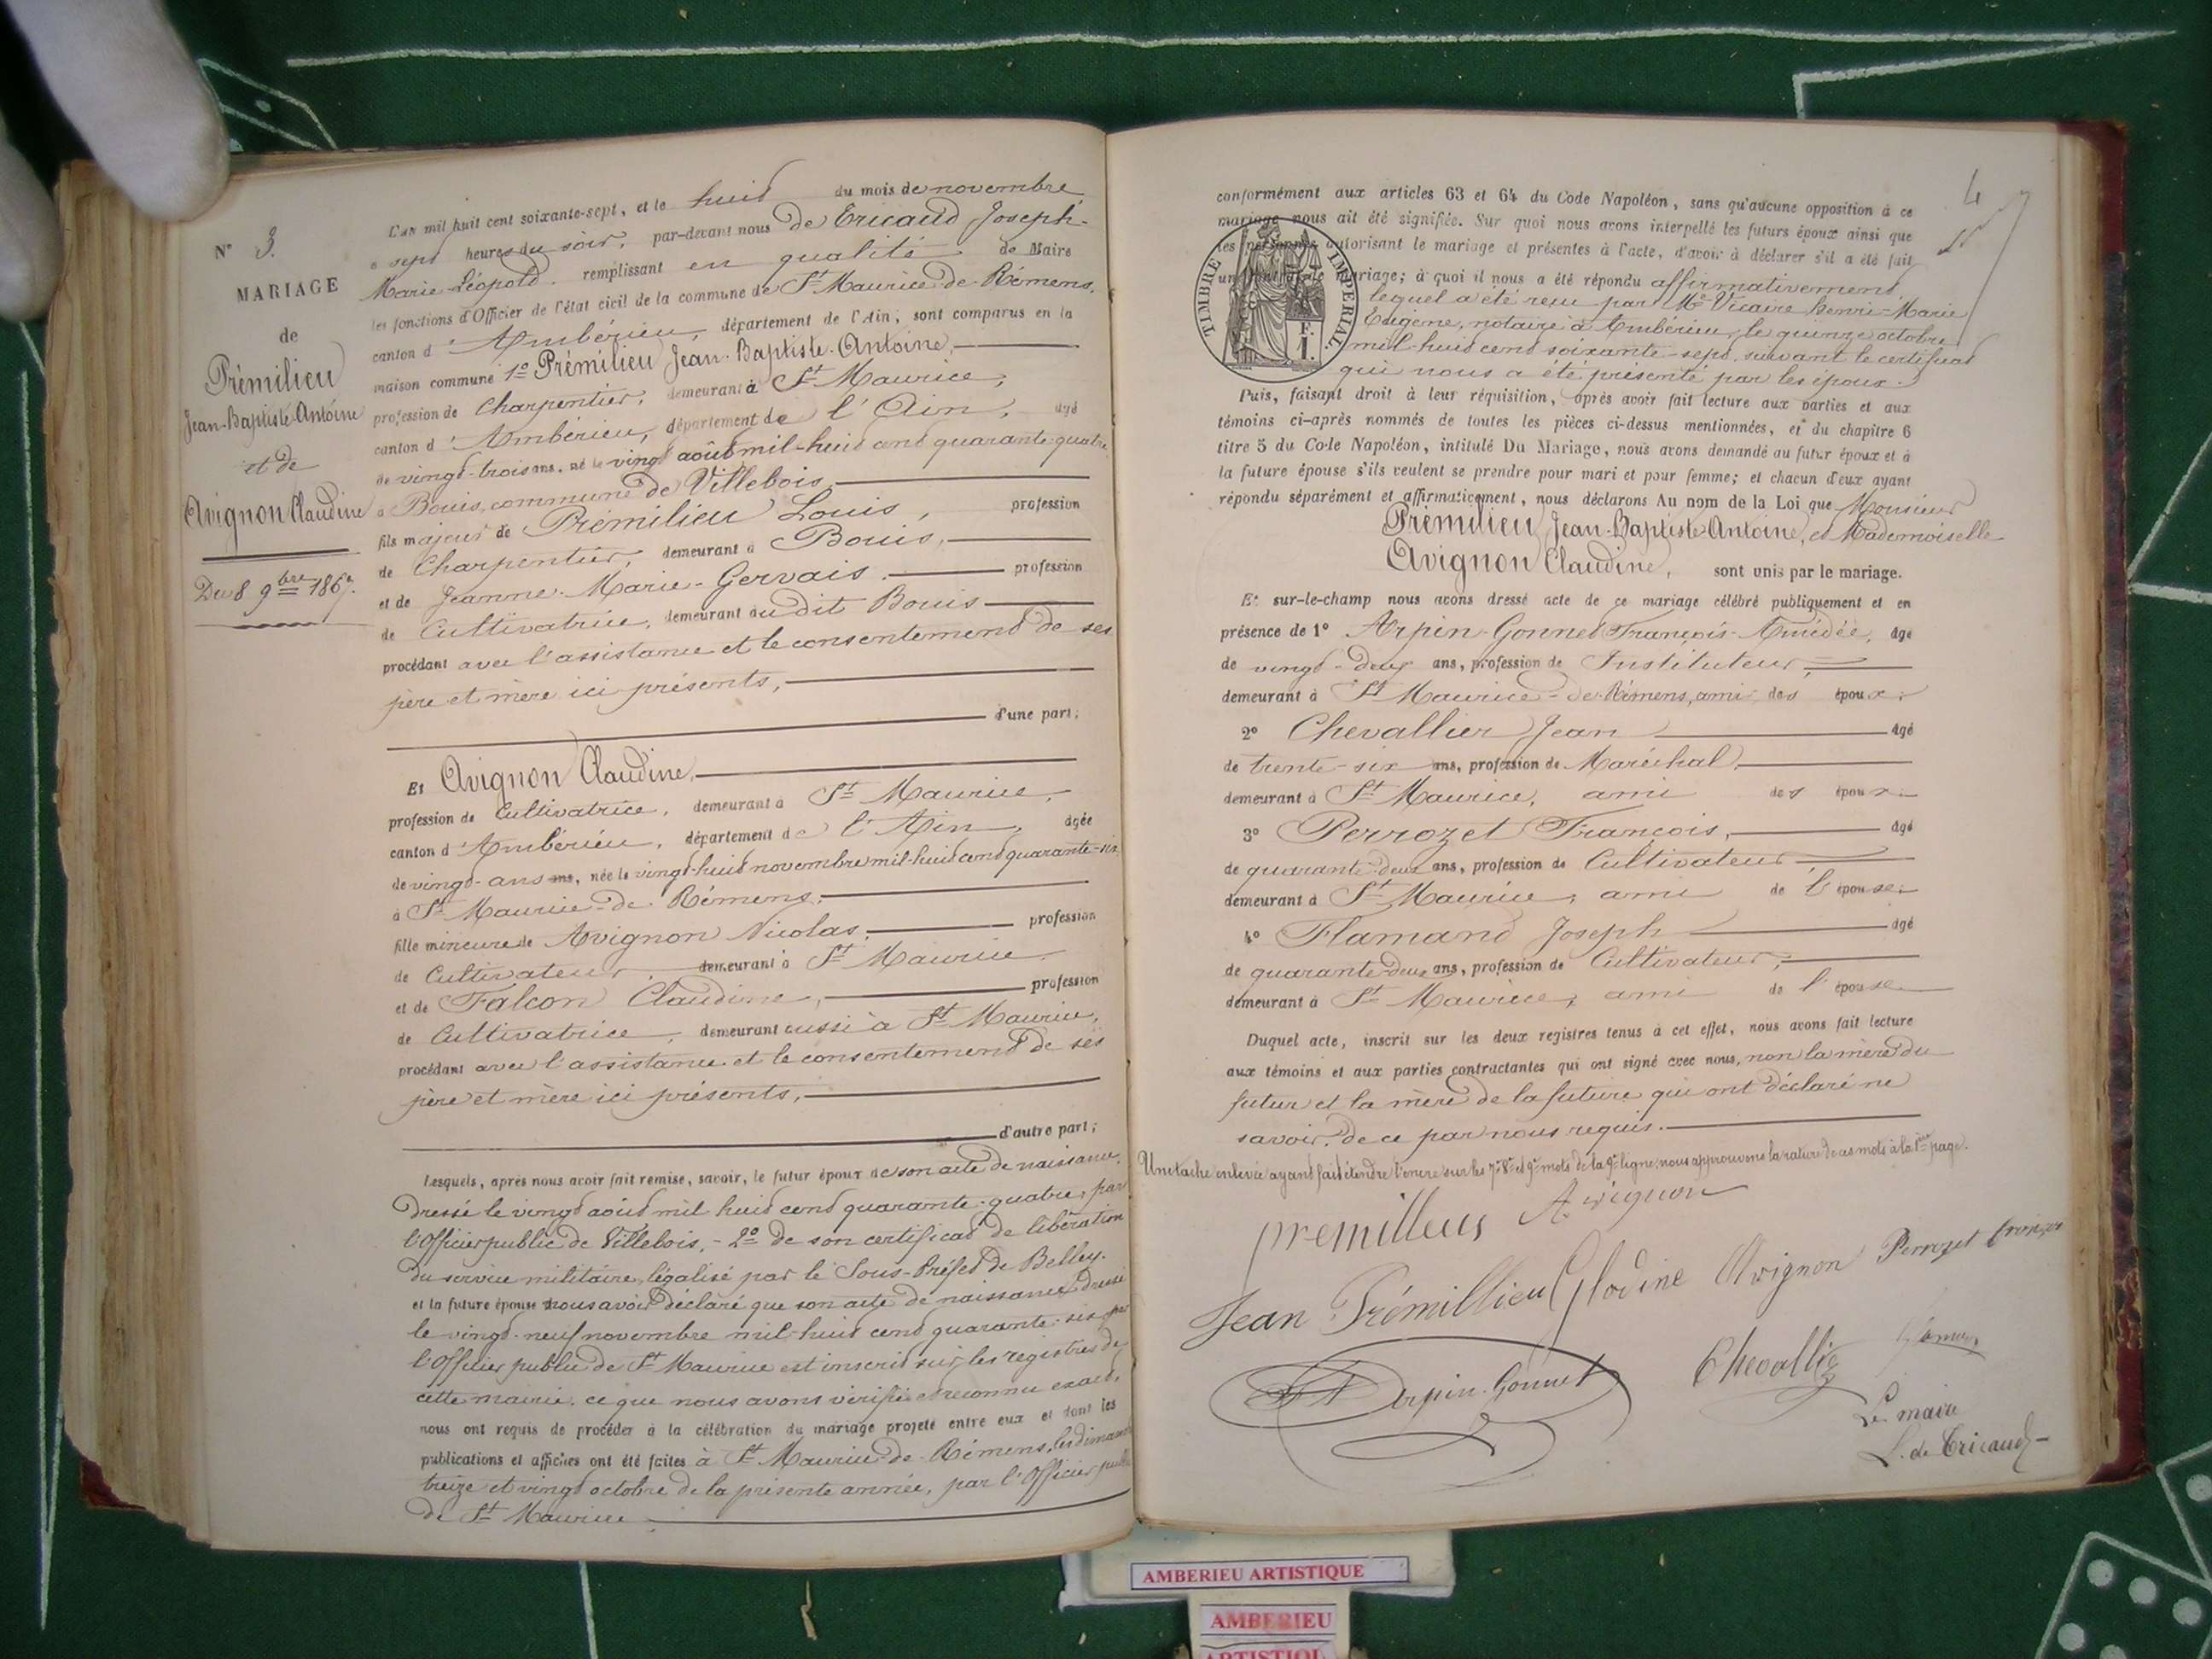 N° 3.
MARIAGE
de
Prémilieu
Jean-Baptiste-Antoine
et de
Avignon Claudine
Du 8 9bre 1867.
L'an mil huit cent soixante-sept, et le huit du mois de novembre
à sept heures du soir, par-devant nous de Tricaud Joseph-
Marie Léopold remplissant en qualité de Maire
les fonctions d'Officier de l'état civil de la commune de St Maurice-de-Rémens,
canton d'Ambérieu, département de l'Ain, sont comparus en la
maison commune 1° Prémilieu Jean-Baptiste-Antoine,
profession de Charpentier, demeurant à St Maurice,
canton d'Ambérieu, département de l'Ain, agé
de vingt-trois ans, né le vingt août mil-huit cent quarante-quatre
à Bouis, commune de Villebois,
fils majeur de Prémilieu Louis, profession
de Charpentier, demeurant à Bouis,
et de Jeanne-Marie-Gervais profession
de Cultivatrice, demeurant au dit Bouis
procédant avec l'assistance et le consentement de ses
père et mère ici présents,
d'une part;
Et Avignon Claudine,
profession de Cultivatrice, demeurant à St Maurice,
canton d'Ambérieu, département de l'Ain, âgée
de vingt-ans ans, née le vingt-huit novembre mil-huit cent quarante-six
à St Maurice-de-Rémens,
fille mineure de Avignon Nicolas, profession
de Cultivateur, demeurant à St Maurice
et de Falcon Claudine, profession
de Cultivatrice, demeurant aussi à St Maurice,
procédant avec l'assistance et le consentement de ses
père et mère ici présents,
d'autre part;
Lesquels, après nous avoir fait remise, savoir, le futur époux de son acte de naissance,
dressé le vingt août mil huit cent quarante-quatre, par
l'Officier public de Villebois, - 2° de son certificat de libération
du service militaire, légalisé par le Sous-Préfet de Belley.
et la future épouse nous avoir déclaré que son acte de naissance dressé
le vingt-neuf novembre mil-huit cent quarante-six par
l'Officier public de St Maurice est inscrit sur les registres de
cette mairie, ce que nous avons vérifié et reconnu exact,
nous ont requis de procéder à la célébration du mariage projeté entre eux et dont les
publications et affiches ont été faites à St Maurice-de-Rémens, les dimanches
treize et vingt octobre de la présente année, par l'Officier public
de St Maurice
4
conformément aux articles 63 et 64 du Code Napoléon, sans qu'aucune opposition à ce
mariage nous ait été signifiée. Sur quoi nous avons interpellé les futurs époux ainsi que
les personnes autorisant le mariage et présentes à l'acte, d'avoir à déclarer s'il a été fait
un contrat de mariage; à quoi il nous a été répondu affirmativement,
TIMBRE IMPÉRIAL.
F. I.
lequel a été reçu par Me Vicaire Henri-Marie
Eugène, notaire à Ambérieu, le quinze octobre
mil-huit cent soixante-sept suivant le certificat
qui nous a été présenté par les époux.
Puis, faisant droit à leur réquisition, après avoir fait lecture aux parties et aux
témoins ci-après nommés de toutes les pièces ci-dessus mentionnées, et du chapitre 6
titre 5 du Code Napoléon, intitulé Du Mariage, nous avons demandé au futur époux et à
la future épouse s'ils veulent se prendre pour mari et pour femme; et chacun d'eux ayant
répondu séparément et affirmativement, nous déclarons Au nom de la Loi que Monsieur
Prémilieu Jean-Baptiste-Antoine, et Mademoiselle
Avignon Claudine, sont unis par le mariage.
Et sur-le-champ nous avons dressé acte de ce mariage célébré publiquement et en
présence de 1° Arpin-Gonnet François-Amédée, âgé
de vingt-deux ans, profession de Instituteur,
demeurant à St Maurice-de-Rémens, ami des époux;
2° Chevallier Jean âgé
de trente-six ans, profession de Maréchal,
demeurant à St Maurice, ami des époux
3° Perrozet François, âgé
de quarante-deux ans, profession de Cultivateur
demeurant à St Maurice, ami de l'épouse
4° Flamand Joseph âgé
de quarante-deux ans, profession de Cultivateur,
demeurant à St Maurice, ami de l'épouse
Duquel acte, inscrit sur les deux registres tenus à cet effet, nous avons fait lecture
aux témoins et aux parties contractantes qui ont signé avec nous, non la mère du
futur et la mère de la future qui ont déclaré ne
savoir, de ce par nous requis.
Une tache enlevée ayant fait étendre l'encre sur les 7e 8e et 9e mots de la 9e ligne, nous approuvons la rature de ces mots à la 1ère page.
premilleus Avignon
Jean Prémillieu Glodine Avignon Perrozet françois
Arpin-Gonnet Chevallier
Le maire
L. de Tricaud
AMBERIEU ARTISTIQUE
AMBERIEU
ARTISTIQU